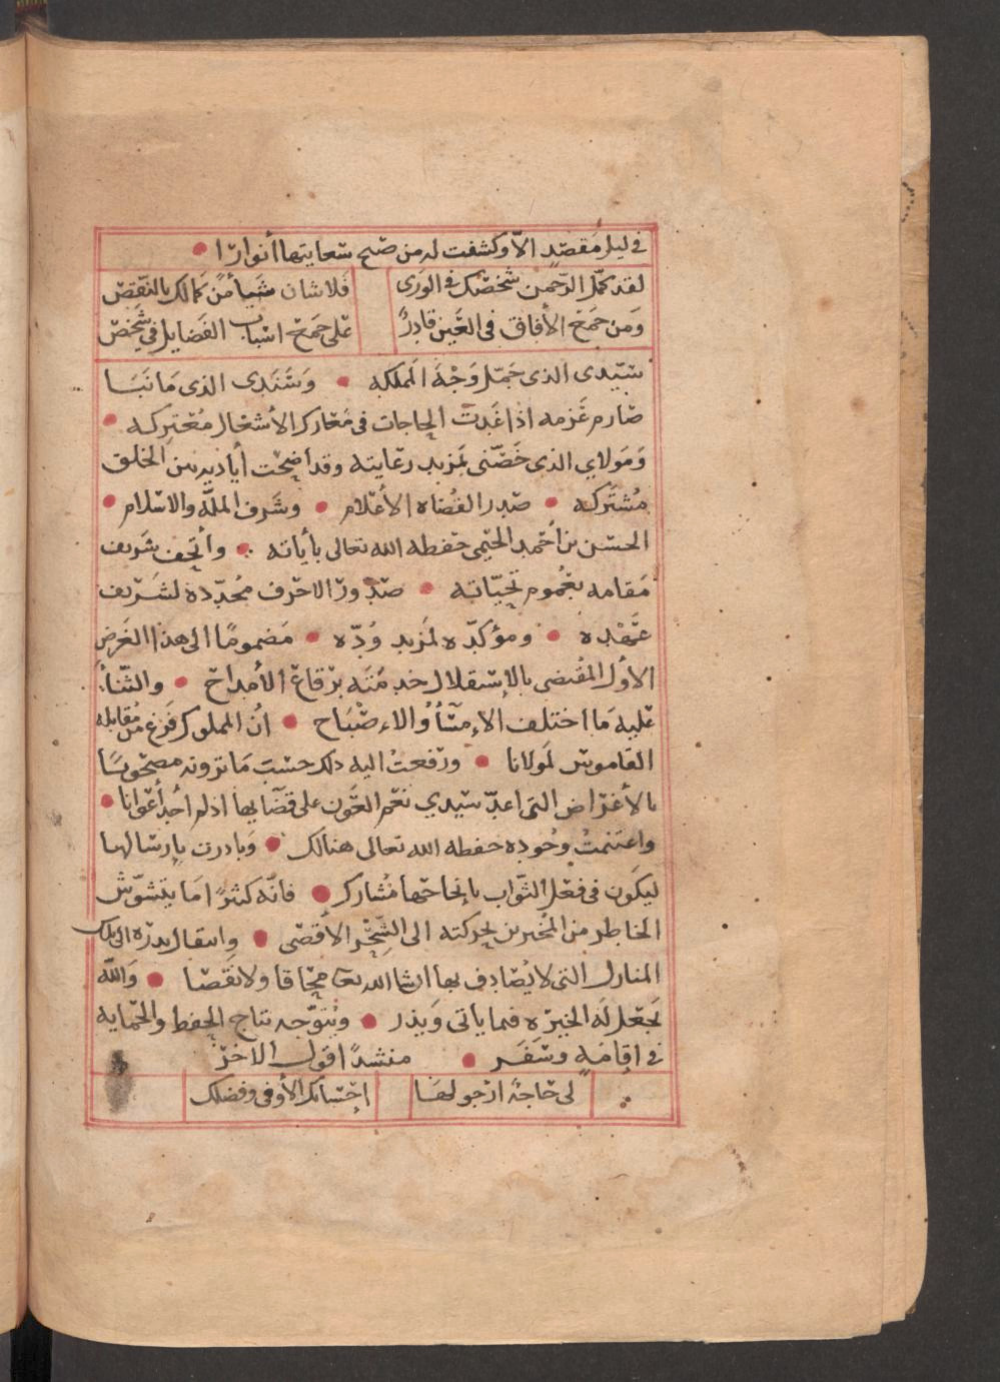 في ليل مقصد الا وكشفت له من صبح سعايتها أنوارا
لقد كمل الرحمن شخصك في الورى فلا شان شيأ من كمالك بالنقص
ومن جمع الأفاق في العين قادر على جمع اسباب الفضايل في شخص
سيدى الذى جمل وجه المملكه وسندى الذى ما نبا
صارم عزمه اذا غدت الحاجات فى معارك الأشغال معتركه
ومولاي الذى خصنى بمزيد رعايته وقد اضحت أياديه بين الخلق
مشتركه صدر القضاه الأعلام وشرف المله والاسلام
الحسن بن أحمد الحيمى حفظه الله تعالى بأياته وأتحف شريف
مقامه بعموم تحياته صدور الاحرف مجدده لشريف
عهده ومؤكده لمزيد وده مضموما الى هذا الغرض
الأول المقتضى بالإستقلال خدمته برقاع الأمداح والثناء
عليه ما اختلف الإمساء والاءصباح ان المملوك فرغ من مقابله
القاموس لمولانا ورفعت اليه ذلك حسب ما ترونه مصحوبا
بالأغراض التى اعد سيدي نعم العون على قضايها اذ لم أجد أعوانا
واغتنمت وجوده حفظه الله تعالى هنالك وبادرت بإرسالها
ليكون فى فعل الثواب بإنجاحها مشارك فانه كثيرا ما يتشوش
الخاطر من المخبرين بحركته الى الشحر الأقصى وانتقال بدره الى تلك
المنازل التى لا يصادف بها ان شا الله تعا محاقا ولا نقصا والله
يجعل له الخيره فيما ياتى ويذر ويتوجه بتاج الحفظ والحمايه
في اقامه وسفر منشدا قول الاخر
لى حاجة ارجو لها إحسانك الأوفى وفضلك